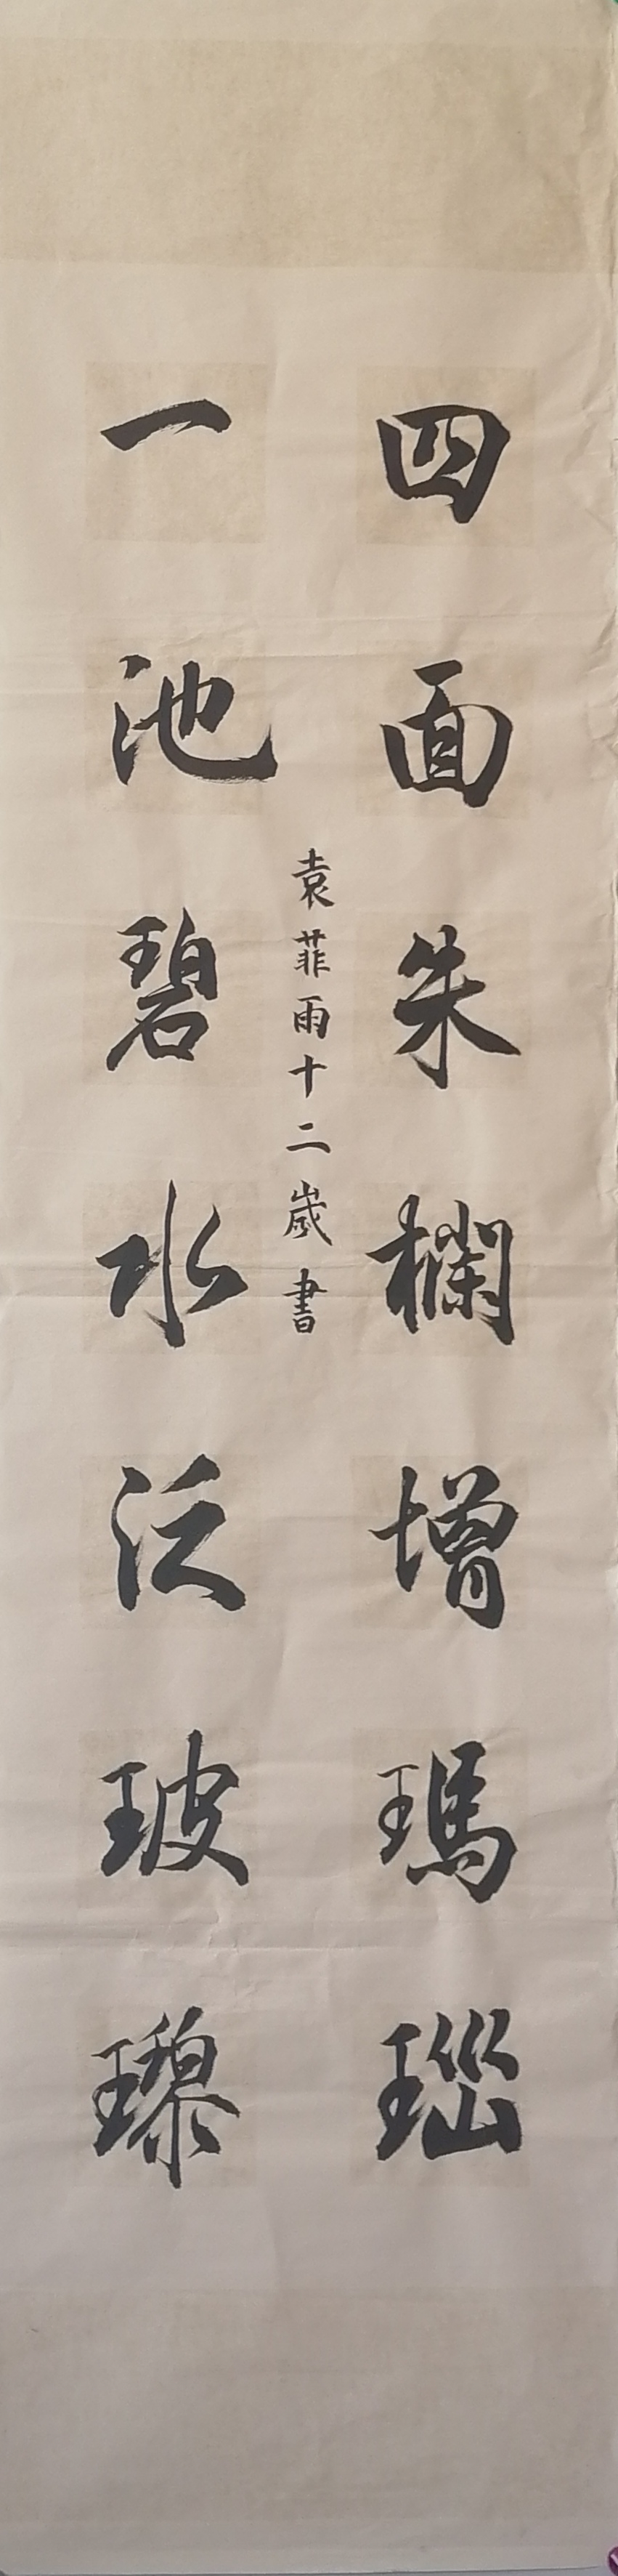 四面朱欄增瑪瑙
一池碧水泛玻瓈
袁菲雨十二歲書